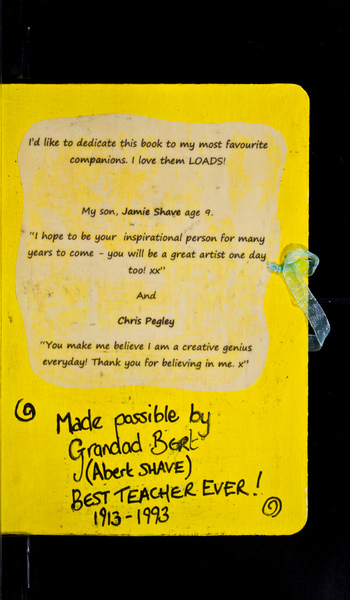 I'd like to dedicate this book to my most favourite
companions. I love them LOADS!
My son, Jamie Shave age 9.
"I hope to be your inspirational person for many
years to come - you will be a great artist one day
too! xx"
And
Chris Pegley
"You make me believe I am a creative genius
everyday! Thank you for believing in me. x"
Made possible by
Grandad Bert
(Abert SHAVE)
BEST TEACHER EVER!
1913-1993